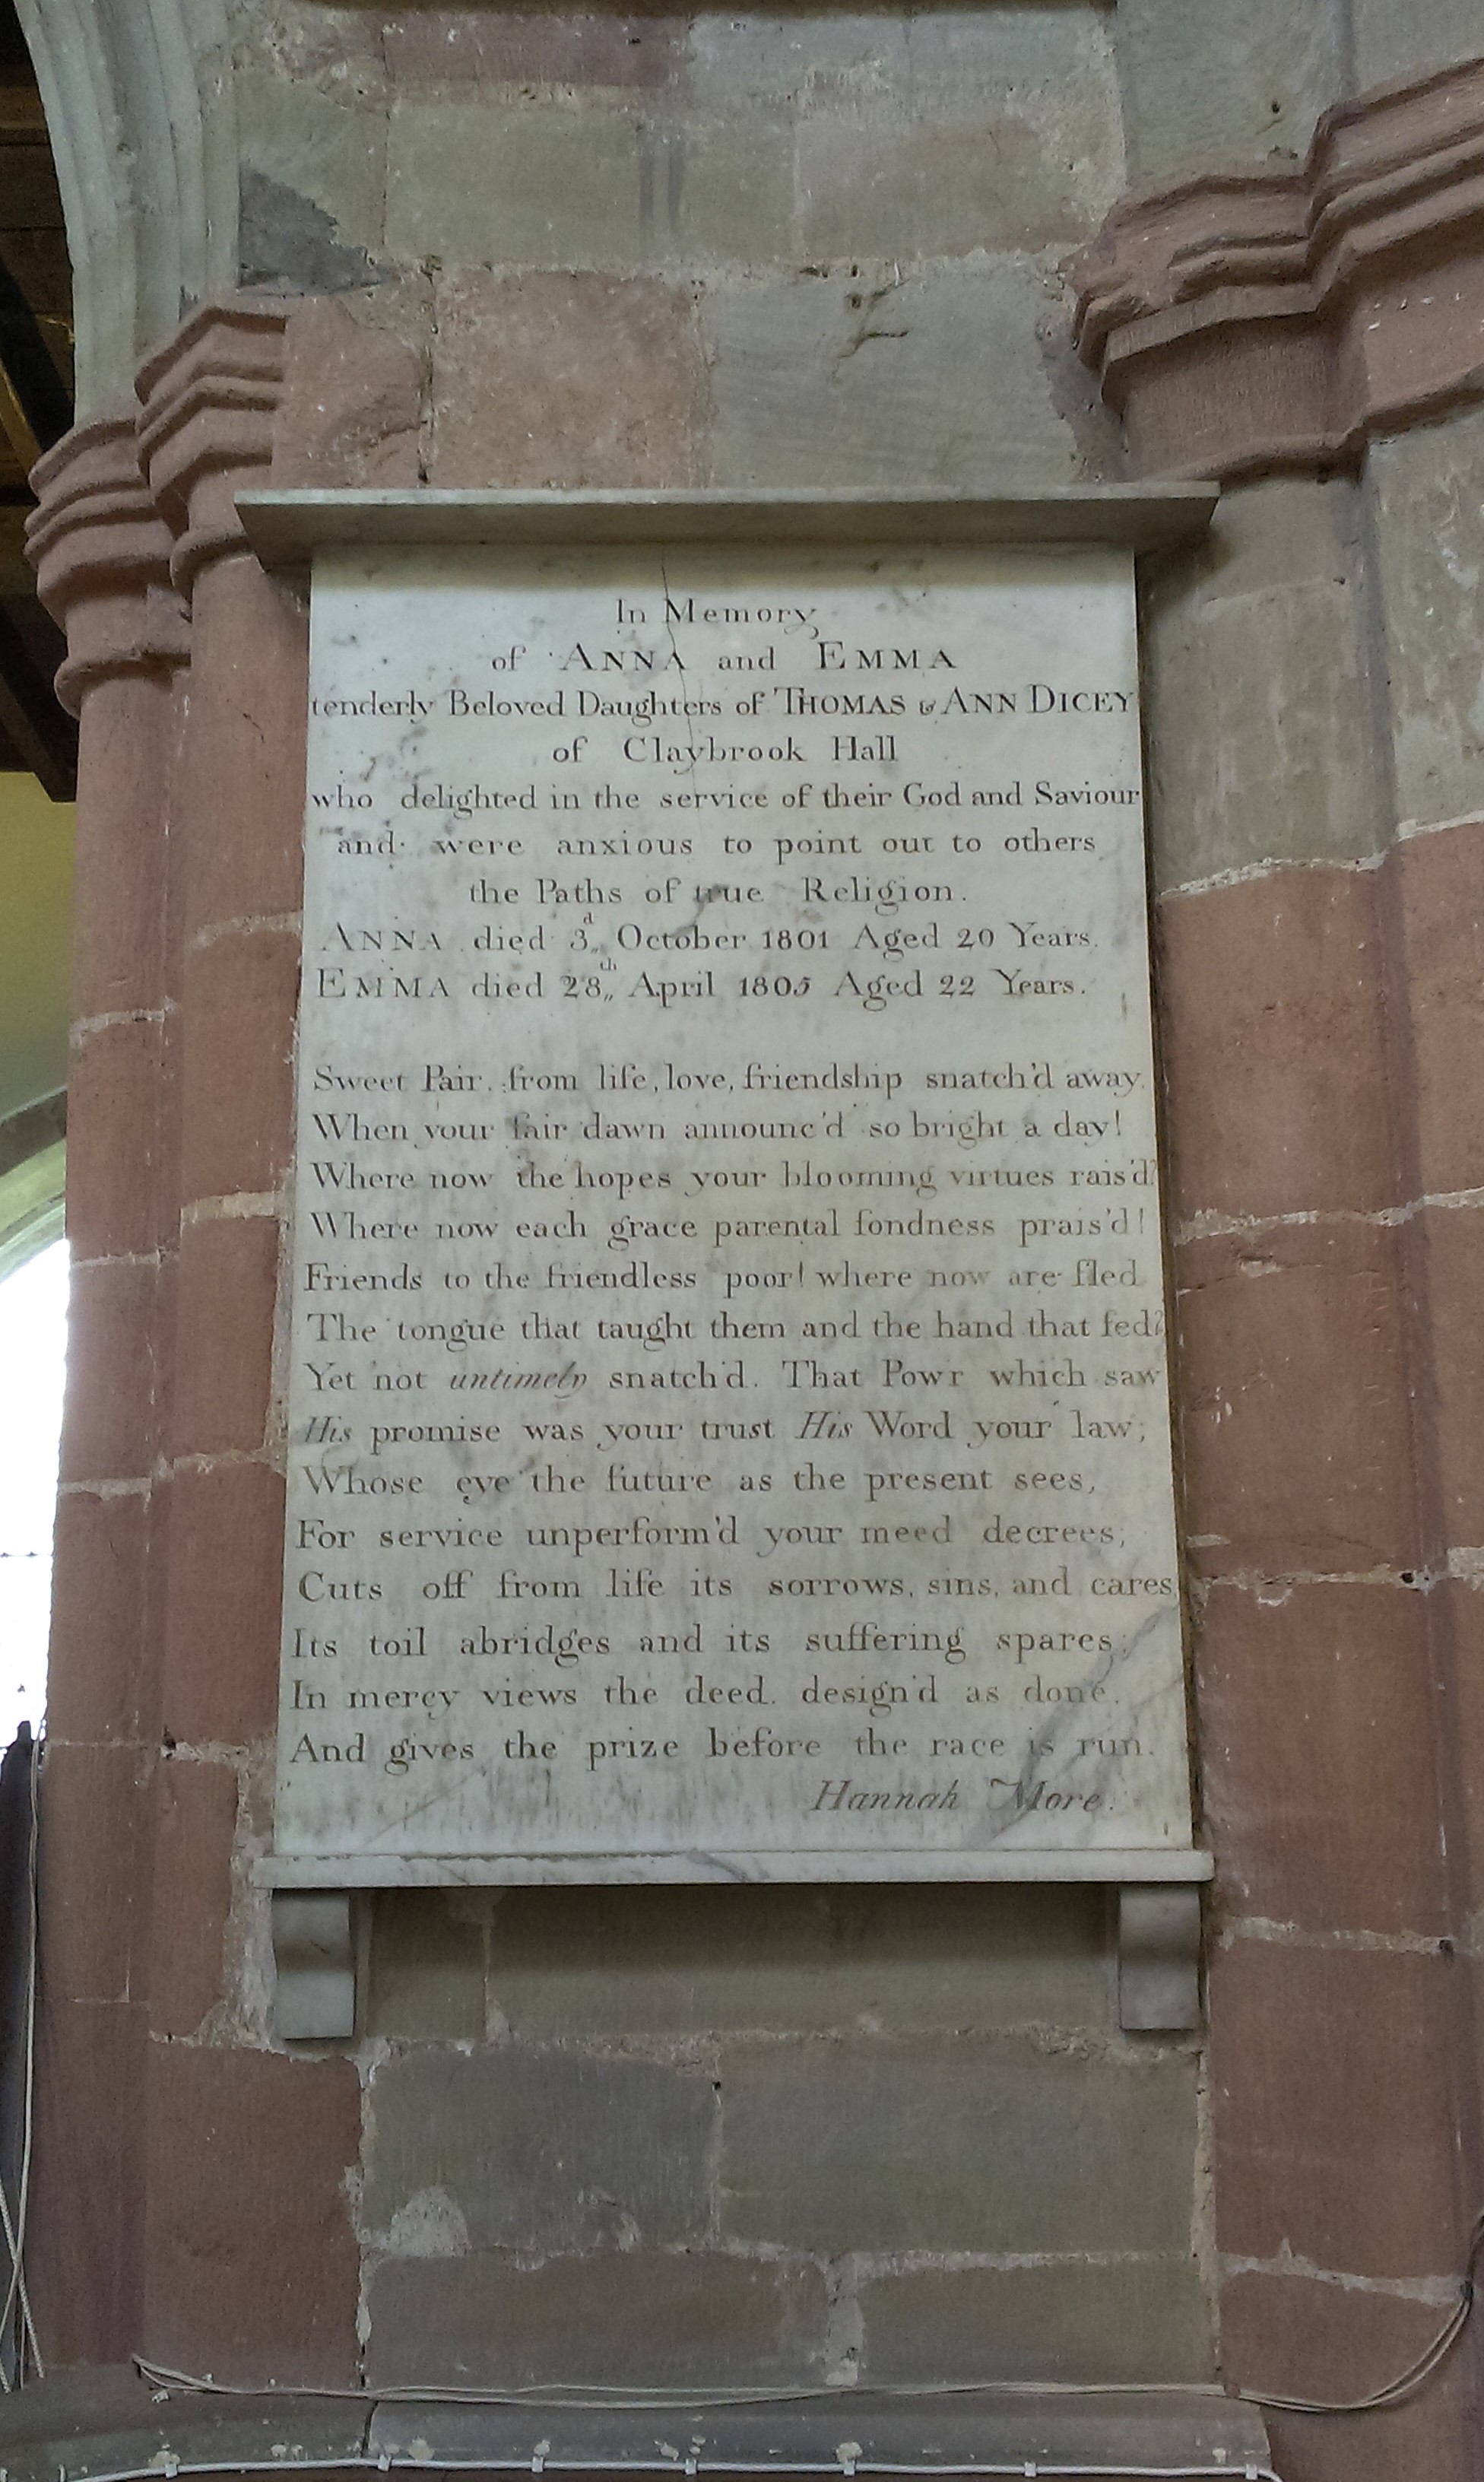 In Memory
of ANNA and EMMA
tenderly Beloved Daughters of THOMAS & ANN DICEY
of Claybrook Hall
who delighted in the service of their God and Saviour
and were anxious to point out to others
the Paths of true Religion.
ANNA died 3d,, October 1801 Aged 20 Years.
EMMA died 28th,, April 1805 Aged 22 Years.
Sweet Pair, from life, love, friendship snatch'd away,
When your fair dawn announc'd so bright a day!
Where now the hopes your blooming virtues rais'd?
Where now each grace parental fondness prais'd!
Friends to the friendless poor! where now are fled
The tongue that taught them and the hand that fed?
Yet not untimely snatch'd. That Powr which saw
His promise was your trust His Word your law;
Whose eye the future as the present sees,
For service unperform'd your meed decrees;
Cuts off from life its sorrows, sins, and cares,
Its toil abridges and its suffering spares;
In mercy views the deed. design'd as done.
And gives the prize before the race is run.
Hannah More.